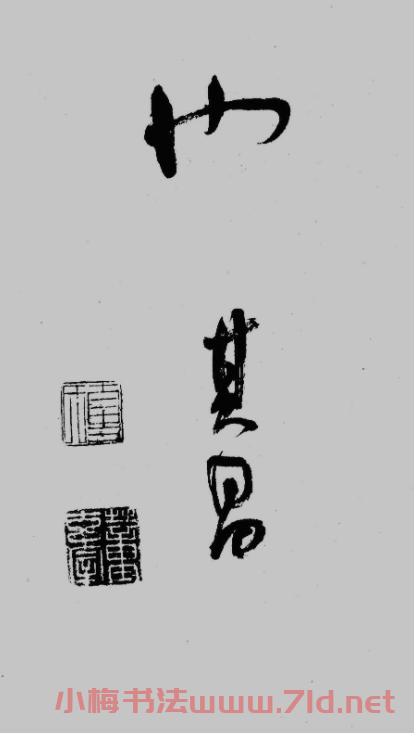 也
其昌
小梅书法www.7ld.net